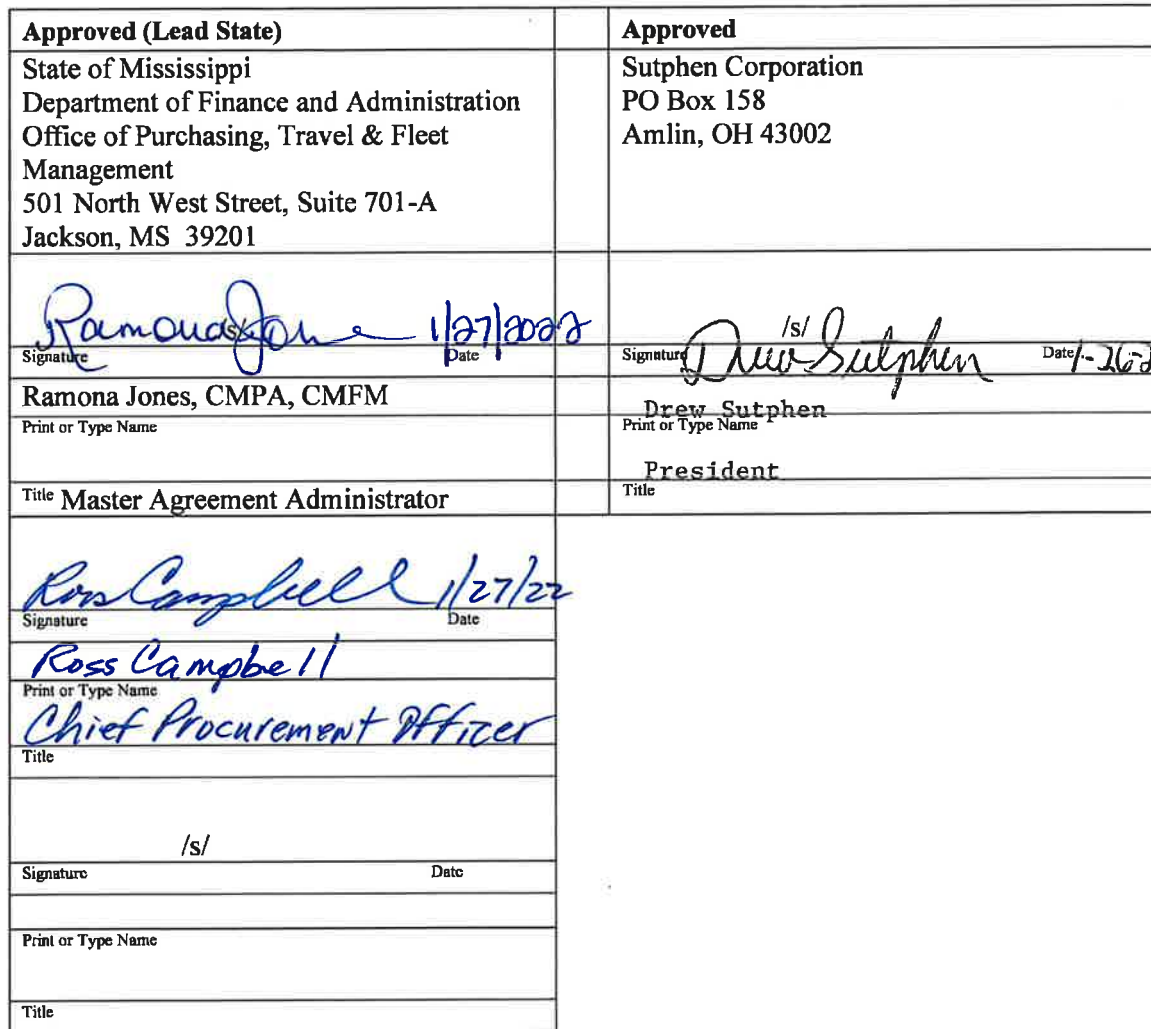 Approved (Lead State)
State of Mississippi
Department of Finance and Administration
Office of Purchasing, Travel & Fleet
Management
501 North West Street, Suite 701-A
Jackson, MS 39201
Ramona Jones 1/27/2022
Signature Date
Ramona Jones, CMPA, CMFM
Print or Type Name
Title Master Agreement Administrator
Ross Campbell 1/27/22
Signature Date
Ross Campbell
Print or Type Name
Chief Procurement Officer
Title
/s/
Signature Date
Print or Type Name
Title
Approved
Sutphen Corporation
PO Box 158
Amlin, OH 43002
/s/
Signature Drew Sutphen Date 1-26-2
Drew Sutphen
Print or Type Name
President
Title